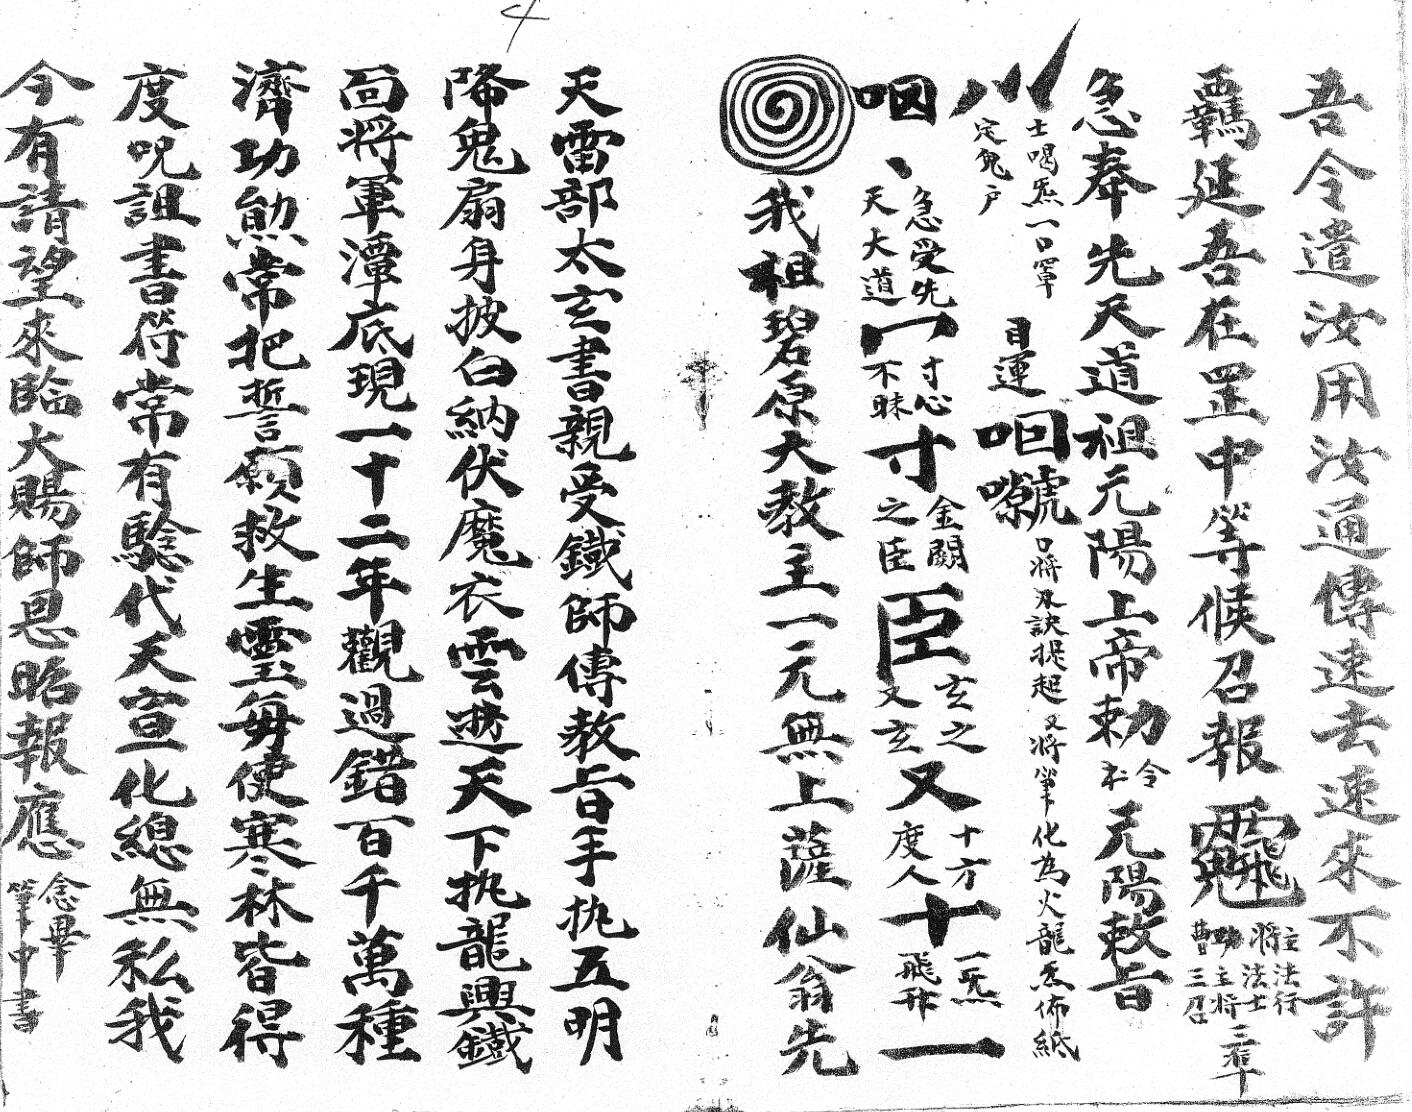 吾令遣汝用汝通傳速去速來不許
羈延吾在罡中等候召報
主法行
將法士
助主將三召
急奉先天道祖元陽上帝勅
令
元陽敕旨
士喝炁一口罩
定鬼戶
目運
呬
將筆化為火龍炁佈紙
呬
急受先
天大道
寸心
不昧
寸
金闕
之臣
臣
玄之
又玄
又
十方
度人
十
一炁
飛升
一
我祖碧原大教主一元無上薩仙翁先
天雷部太玄書親受鐵師傳教旨手执五明
降鬼扇身披白納伏魔衣雲遊天下执龍興鐵
面將軍潭底現一十二年觀過錯百千萬種
濟功勛常把誓願救生靈每使寒林皆得
度呪詛書符常有驗代天宣化總無私我
今有請望來臨大賜師恩昭報應
念畢
筆中書